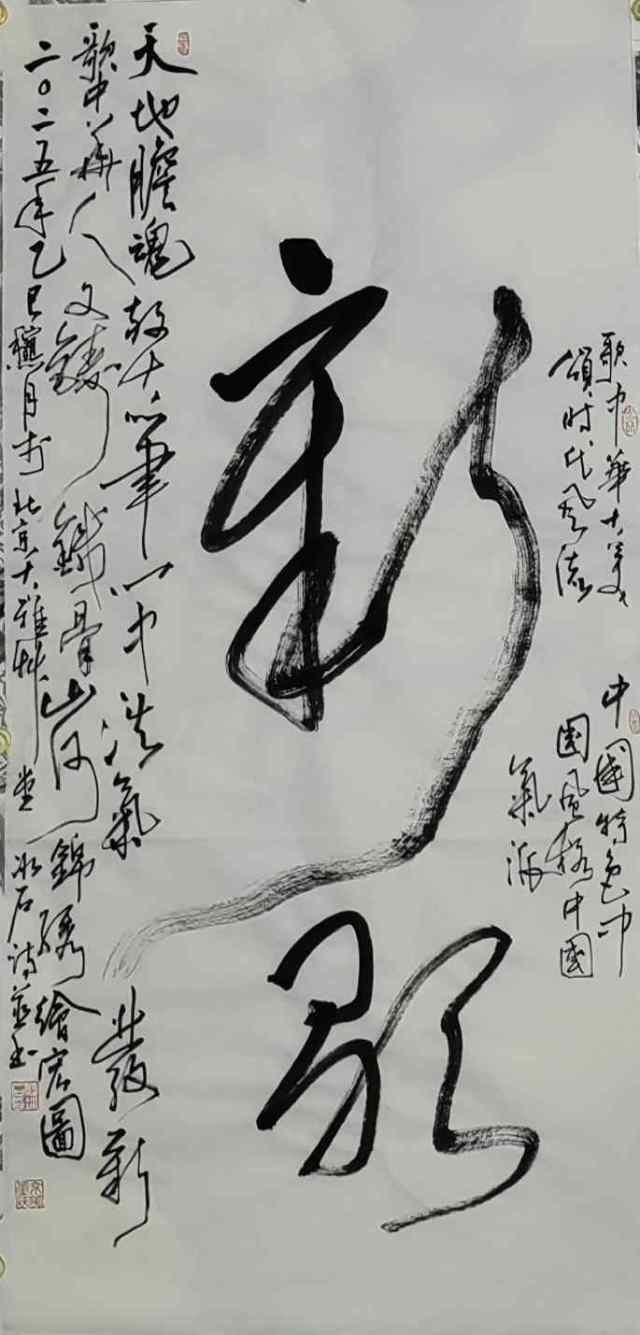 歌中華大美
頌時代風流
中國特色中
國風格中國
氣派
新歌
天地膽魂放大筆心中浩氣發新
歌中華人文鑄鐵骨山河錦繡繪宏圖
二〇二五年乙巳穐月於北京大雅草堂冰石詩並書